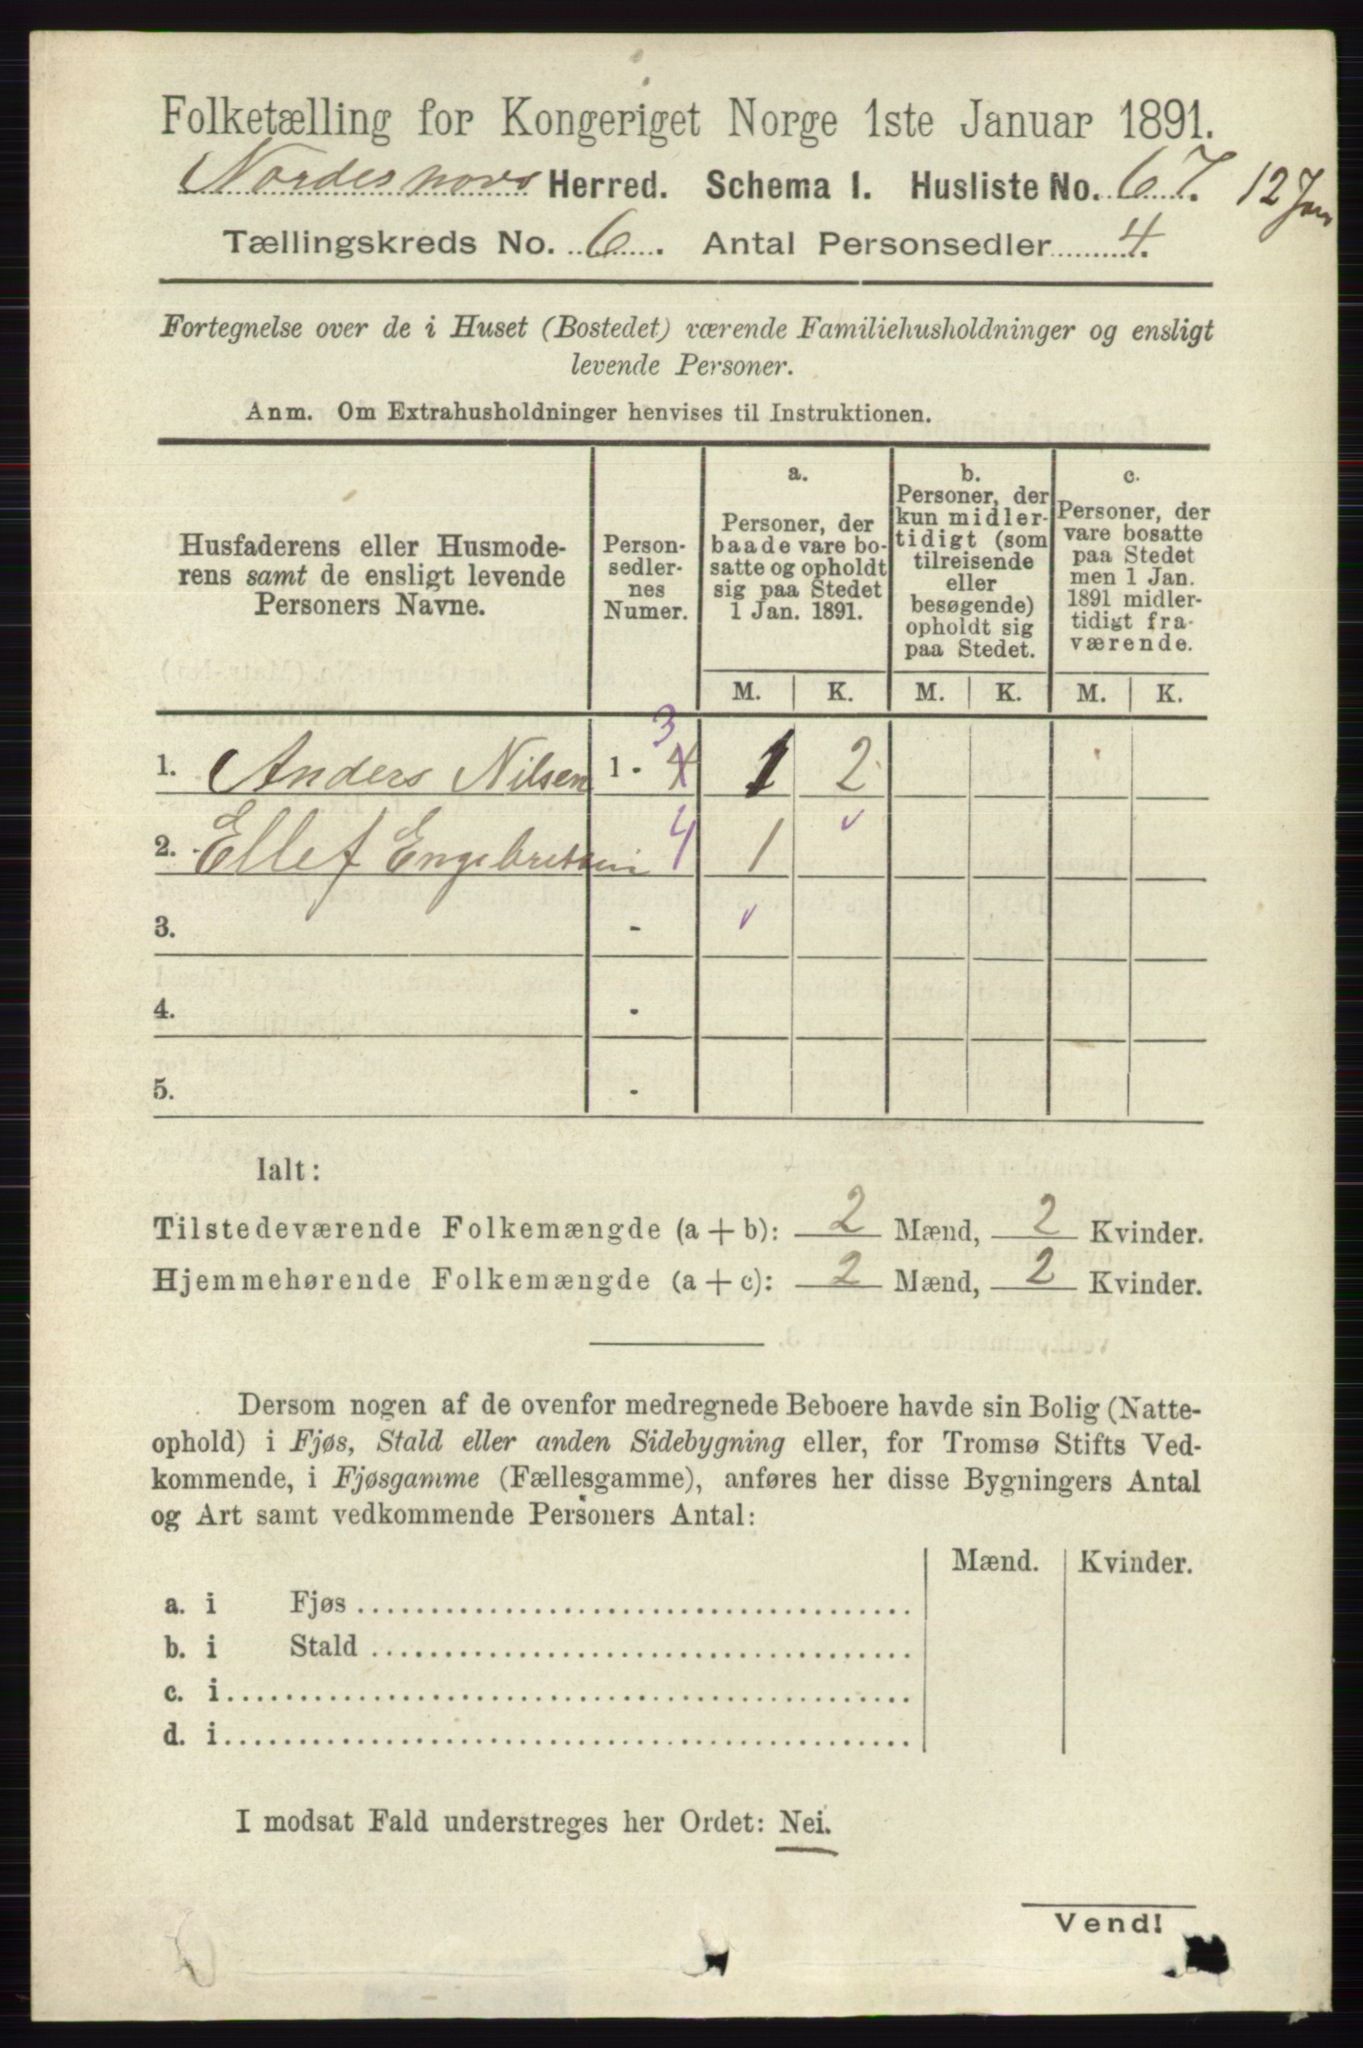 Folketælling for Kongeriget Norge 1ste Januar 1891.
Nordesnovs Herred. Schema I. Husliste No. 67. 12 Jan
Tællingskreds No. 6. Antal Personsedler 4.
Fortegnelse over de i Huset (Bostedet) værende Familiehusholdninger og ensligt
levende Personer.
Anm. Om Extrahusholdninger henvises til Instruktionen.
Husfaderens eller Husmode-
rens samt de ensligt levende
Personers Navne.
Person-
sedler-
nes
Numer.
a.
Personer, der
baade vare bo-
satte og opholdt
sig paa Stedet
1 Jan. 1891.
b.
Personer, der
kun midler-
tidigt (som
tilreisende
eller
besøgende)
opholdt sig
paa Stedet.
c.
Personer, der
vare bosatte
paa Stedet
men 1 Jan.
1891 midler-
tidigt fra-
værende.
M. K. M. K. M. K.
3
1. Anders Nilsen 1 - 4 1 2
2. Ellef Engebretsen 4 1
3. -
4. -
5. -
Ialt:
Tilstedeværende Folkemængde (a + b): 2 Mænd, 2 Kvinder.
Hjemmehørende Folkemængde (a + c): 2 Mænd, 2 Kvinder.
Dersom nogen af de ovenfor medregnede Beboere havde sin Bolig (Natte-
ophold) i Fjøs, Stald eller anden Sidebygning eller, for Tromsø Stifts Ved-
kommende, i Fjøsgamme (Fællesgamme), anføres her disse Bygningers Antal
og Art samt vedkommende Personers Antal:
Mænd. Kvinder.
a. i Fjøs
b. i Stald
c. i
d. i
I modsat Fald understreges her Ordet: Nei.
Vend!